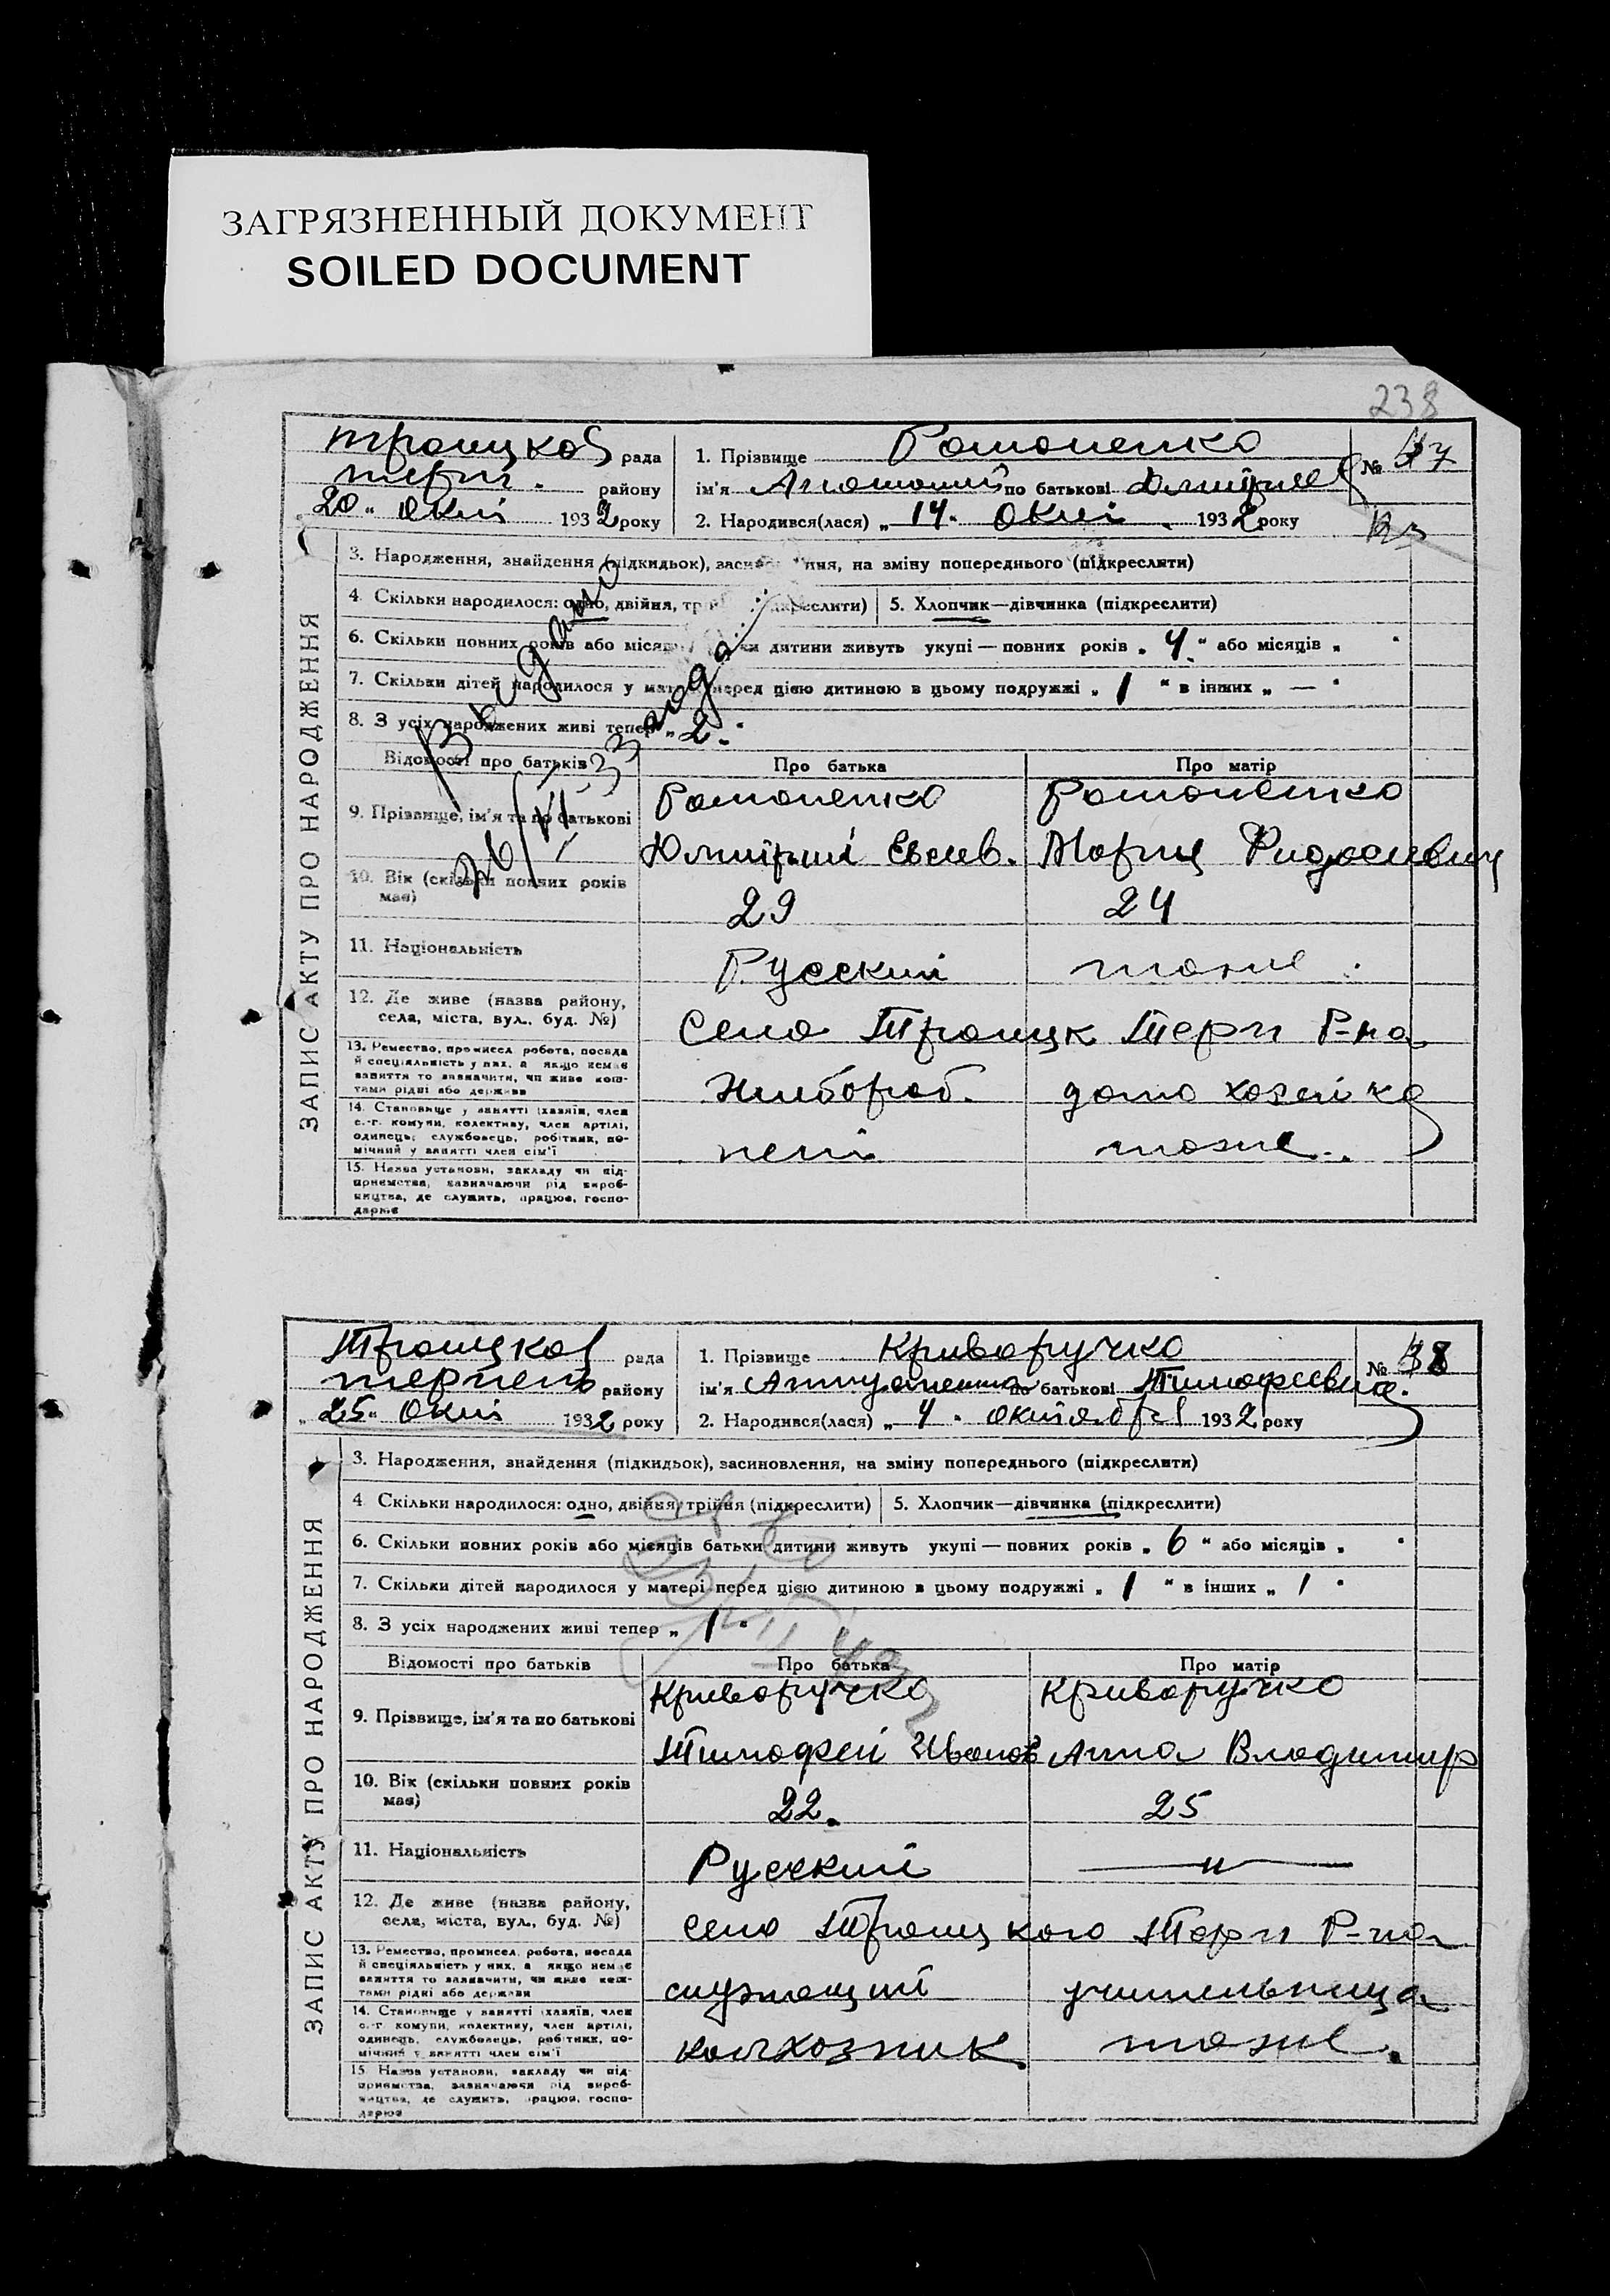 ЗАГРЯЗНЕННЫЙ ДОКУМЕНТ
SOILED DOCUMENT
238
ЗАПИС АКТУ ПРО НАРОДЖЕННЯ
Троицков рада
терп. району
„20“ окт 1932 року
1. Прізвище Ромоненко
№ 37
ім'я Анатолий по батькові Дмитриев
2. Народився(лася) „14“ окт 1932 року
3. Народження, знайдення (підкидьок), засиновлення, на зміну попереднього (підкреслити)
4. Скільки народилося: одно, двійня, трійня (підкреслити) 5. Хлопчик—дівчинка (підкреслити)
6. Скільки повних років або місяців батьки дитини живуть укупі — повних років „4“ або місяців „ “
7. Скільки дітей народилося у матері перед цією дитиною в цьому подружжі „1“ в інших „—“
8. З усіх народжених живі тепер „2“
Відомості про батьків Про батька Про матір
9. Прізвище, ім'я та по батькові
Ромоненко Ромоненко
Дмитрий Евсев. Мария
10. Вік (скільки повних років має)
29 24
11. Національність Русский тоже
12. Де живе (назва району, села, міста, вул., буд. №)
Село Троицк Терп Р-на
13. Ремество, промисел, робота, посада й спеціяльність у них, а якщо немає заняття то зазначити, чи живе коштами рідні або держави
Хлибороб. домо хозейка
14. Становище у занятті (хазяїн, член с.-г. комуни, колективу, член артілі, одинець, службовець, робітник, помічний у занятті член сім'ї
тоже
15. Назва установи, закладу чи підприємства, зазначаючи рід виробництва, де служить, працює, господарює
Выдано
26/VI-33 года
ЗАПИС АКТУ ПРО НАРОДЖЕННЯ
Троицков рада
терпень району
„25“ окт 1932 року
1. Прізвище Криворучко
№ 38
ім'я по батькові Тимофеевна.
2. Народився(лася) „4“ октября 1932 року
3. Народження, знайдення (підкидьок), засиновлення, на зміну попереднього (підкреслити)
4. Скільки народилося: одно, двійня, трійня (підкреслити) 5. Хлопчик—дівчинка (підкреслити)
6. Скільки повних років або місяців батьки дитини живуть укупі — повних років „6“ або місяців „ “
7. Скільки дітей народилося у матері перед цією дитиною в цьому подружжі „1“ в інших „1“
8. З усіх народжених живі тепер „1“
Відомості про батьків Про батька Про матір
9. Прізвище, ім'я та по батькові
Криворучко Криворучко
Тимофей Иванов Анна Владимир
10. Вік (скільки повних років має)
22. 25
11. Національність Русский —"—
12. Де живе (назва району, села, міста, вул., буд. №)
село Троицкого Терп Р-на
13. Ремество, промисел, робота, посада й спеціяльність у них, а якщо немає заняття то зазначити, чи живе коштами рідні або держави
служащий учительница
14. Становище у занятті (хазяїн, член с.-г. комуни, колективу, член артілі, одинець, службовець, робітник, помічний у занятті член сім'ї
колхозник тоже.
15. Назва установи, закладу чи підприємства, зазначаючи рід виробництва, де служить, працює, господарює